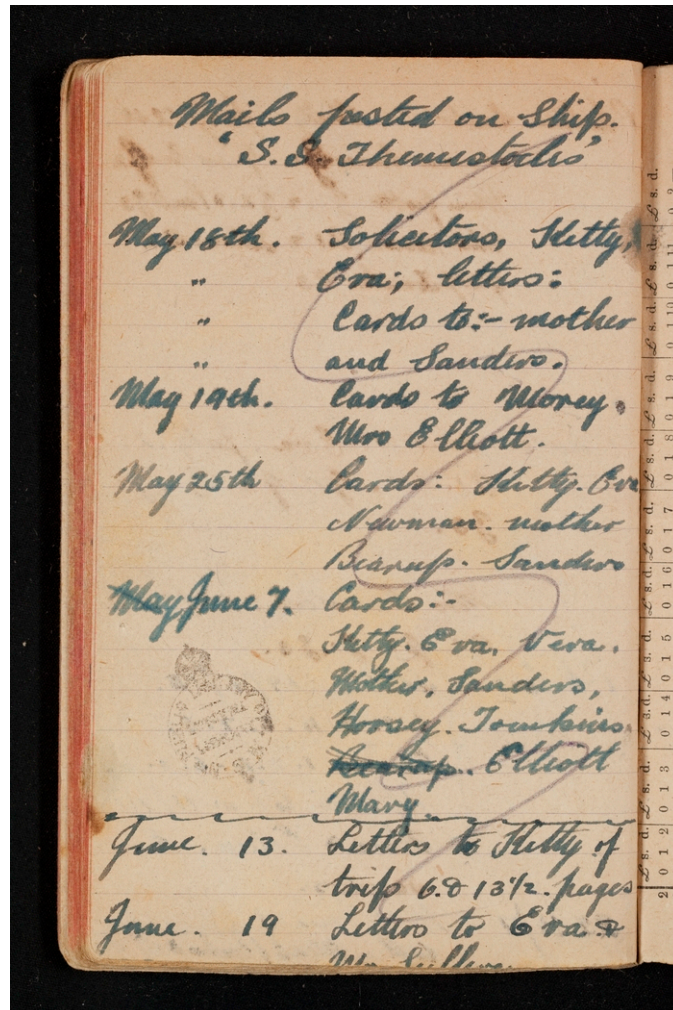 Mails posted on Ship.
"S.S. Themistocles"
May 18th. Solicitors, Kitty,
" Eva; letters:
" Cards to:- mother
" and Sanders.
May 19th. Cards to Morey.
Mrs Elliott.
May 25th Cards: Kitty. Eva
Newman. mother
Bearup. Sanders
May June 7. Cards:-
Kitty. Eva. Vera.
Mother, Sanders,
Horsey. Tomkins.
Bearup. Elliott
Mary
June. 13. Letters to Kitty of
trip 6.& 13½. pages
June. 19 Letters to Eva &